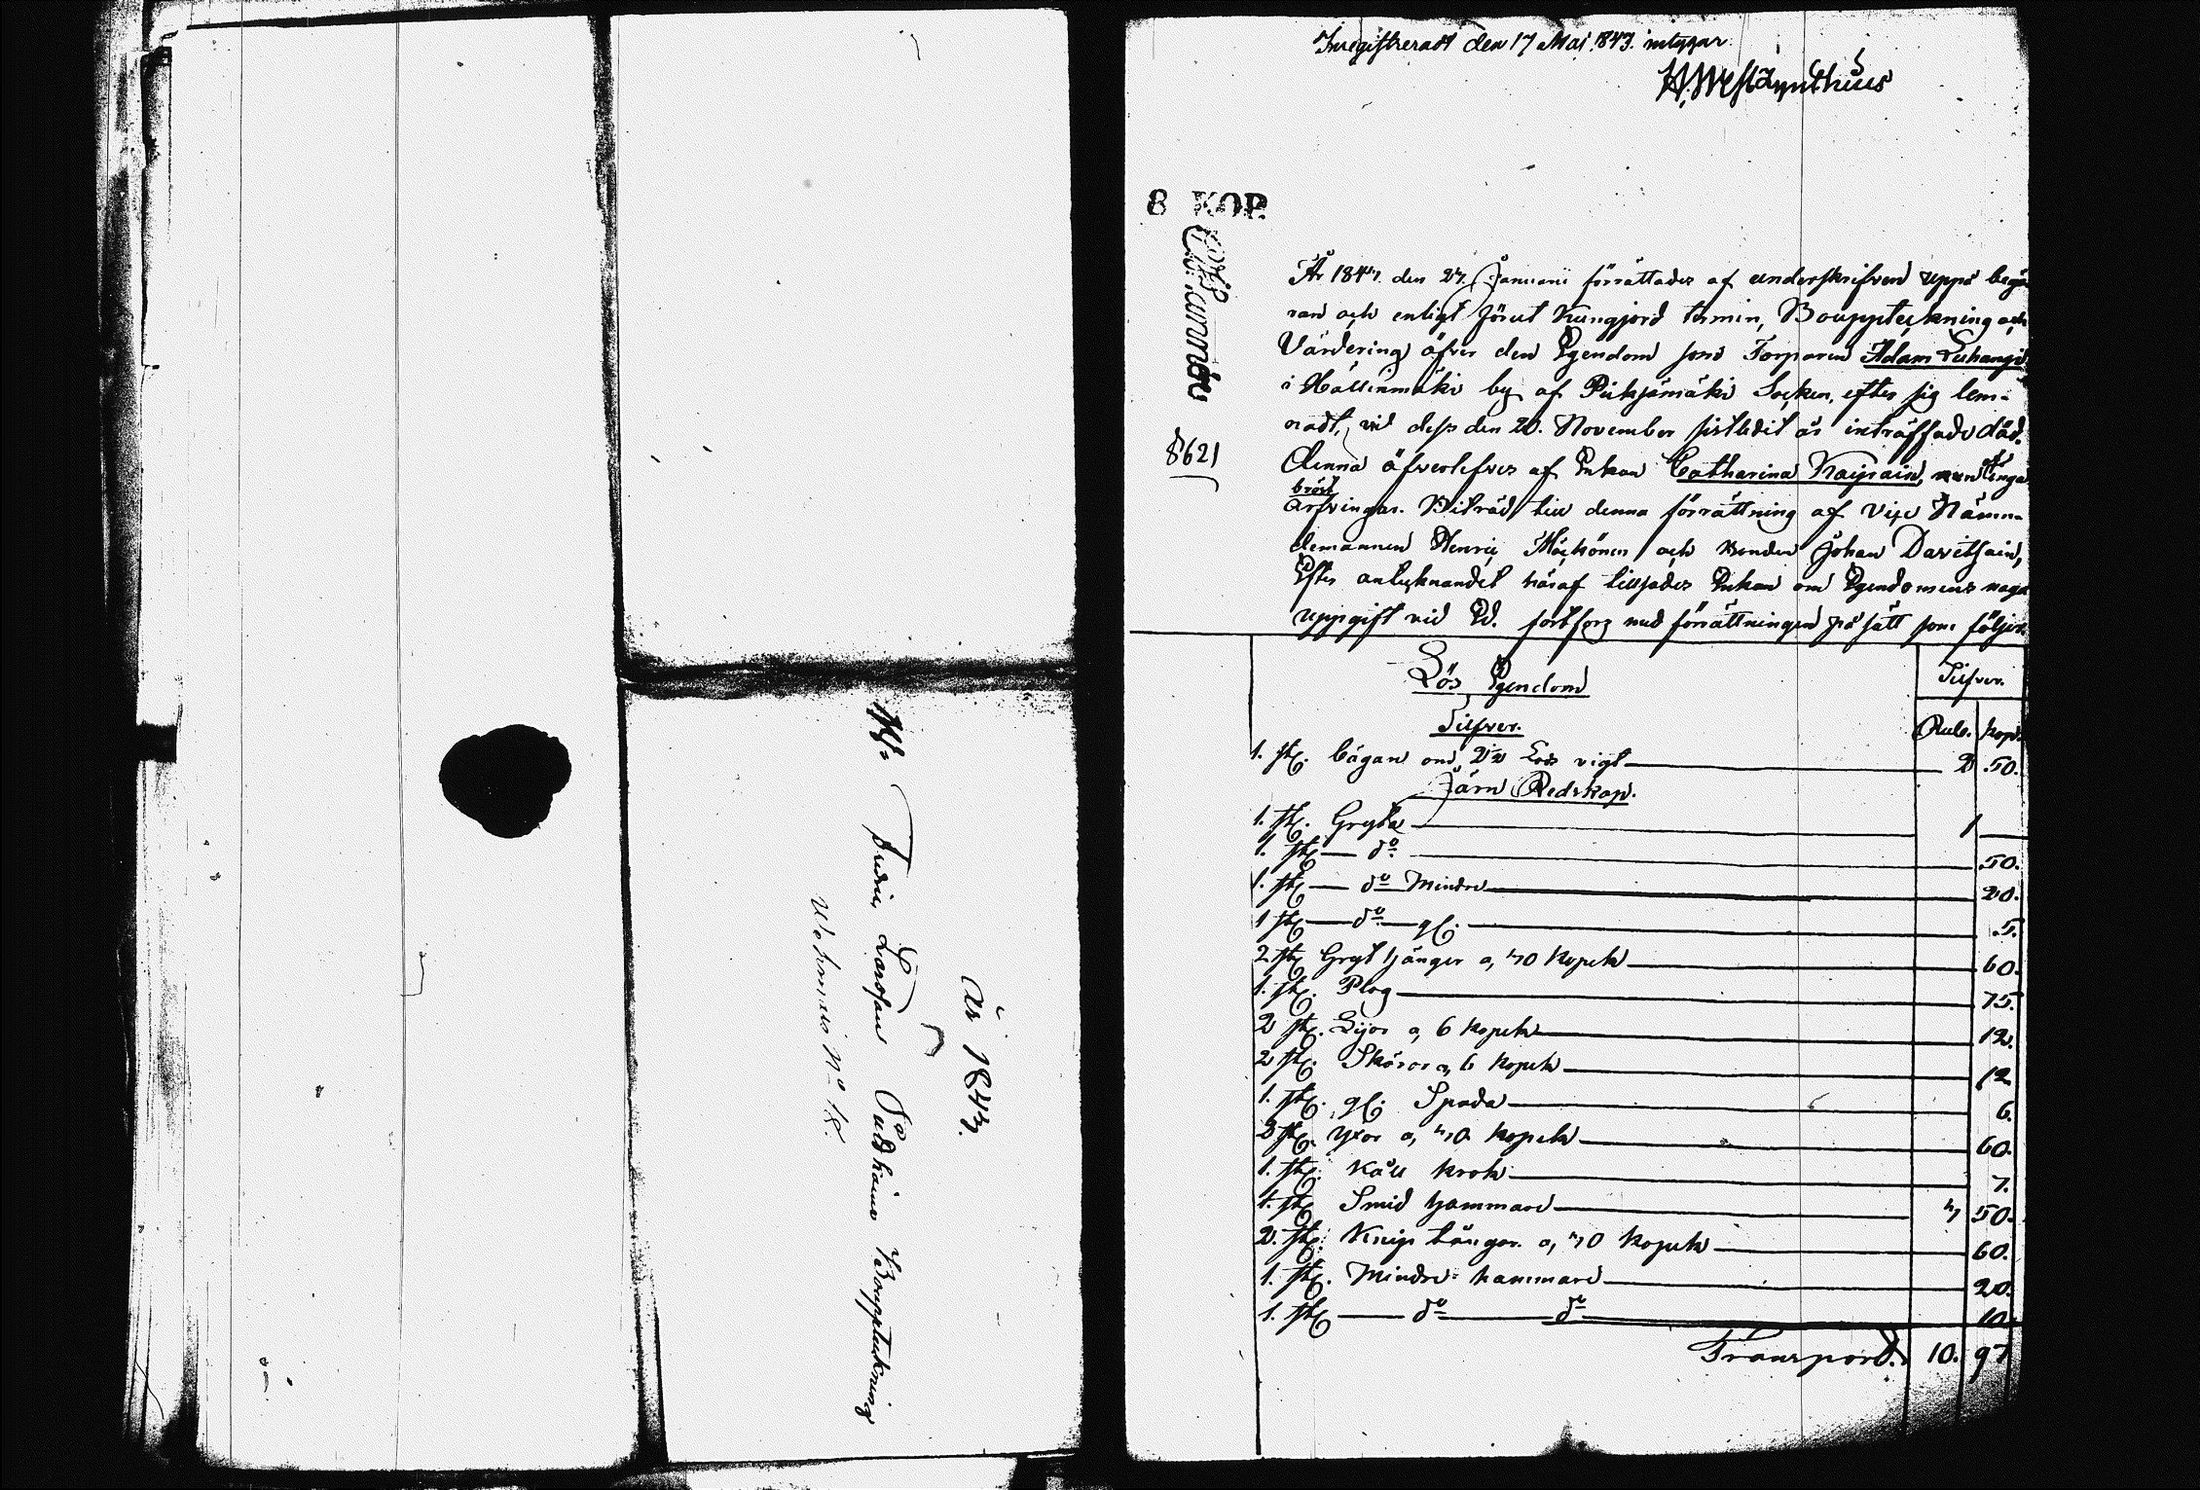 År 1843.
Fredric Larsson Pudhainn Bouppteckning
Inregistreradt den 17 Maj 1843. intygar
8 KOP.
8621
År 1843. den 27. Januarii förrättades af underskrifven uppå begä
ran och enligt förut kungjord termin, Bouppteckning och
Värdering öfver den Egendom som Torparen Adam Luhangi
i Hällinmäki by af Pieksämäki Socken, efter sig lem-
nadt, vid dess den 20. November sistledit år inträffade död.
denna öfverlefves af Enkan Catharina Kaipain, men inga
bröst
arfvingar. Biträd till denna förrättning af Vice Nämn-
demannen Henric Häkönen och Bonden Johan Davitsain,
Efter antecknandet häraf tillsades Enkan om Egendomens noga
uppgift vid Ed. fortfors med förrättningen på sätt som följer.
Lös Egendom
Silfver.
Silfver.
Rub. Kop.
1. st. bägare om 2½ Lod vigt 2 .50.
Järn Redskap.
1. st. Gryta 1
1. st. do 50.
1. st. do Mindre 20.
1 st. do gl. 5.
2 st. Gryt hänger a, 30 Kopek 60.
1. st. Plog 75.
2 st. Lijor a, 6 kopek 12.
2 st. Skäror a, 6 kopek 12
1. st. gl. Spada 6.
2 st. Yxor a, 30 kopek 60.
1. st. Kåll krok 7.
1. st. Smid hammare 3 50.
2. st. Knip tänger a, 30 Kopek 60.
1. st. Mindre hammare 20.
1. st. do do 10.
Transport. 10. 97